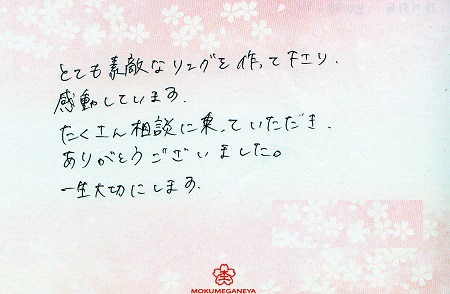 とても素敵なリングを作って下さり、
感動しています。
たくさん相談に乗っていただき、
ありがとうございました。
一生大切にします。
MOKUMEGANEYA